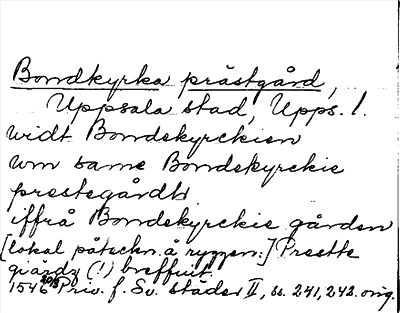 Bondkyrka prästgård,
Uppsala stad, Upps. l.
widt Bondekyrckien
um samme Bondekyrckie
prestegårdh
iffrå Bondekyrckie gården
[lokal påteckn. å ryggen:] Prestte
giärdz (!) breffuit.
1546 20/5 Priv. f. Sv. städer II, ss. 241, 242. orig.